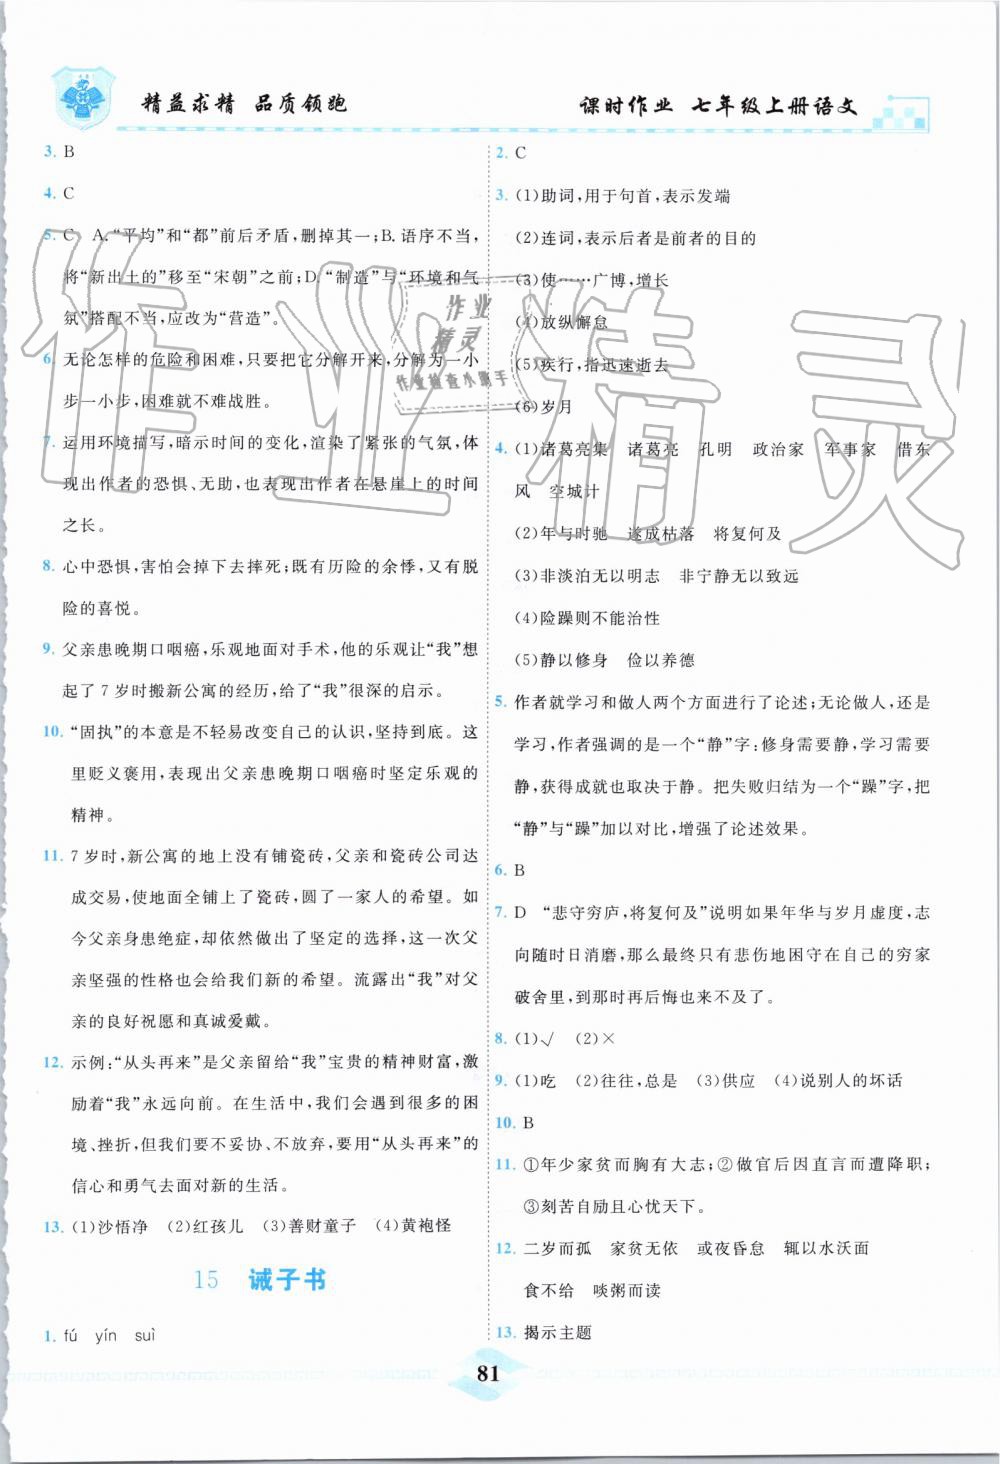 精益求精 品质领跑
课时作业 七年级上册语文
3. B
4. C
5. C A.“平均”和“都”前后矛盾,删掉其一;B.语序不当,
将“新出土的”移至“宋朝”之前;D.“制造”与“环境和气
氛”搭配不当,应改为“营造”。
6. 无论怎样的危险和困难,只要把它分解开来,分解为一小
步一小步,困难就不难战胜。
7. 运用环境描写,暗示时间的变化,渲染了紧张的气氛,体
现出作者的恐惧、无助,也表现出作者在悬崖上的时间
之长。
8. 心中恐惧,害怕会掉下去摔死;既有历险的余悸,又有脱
险的喜悦。
9. 父亲患晚期口咽癌,乐观地面对手术,他的乐观让“我”想
起了7岁时搬新公寓的经历,给了“我”很深的启示。
10. “固执”的本意是不轻易改变自己的认识,坚持到底。这
里贬义褒用,表现出父亲患晚期口咽癌时坚定乐观的
精神。
11. 7岁时,新公寓的地上没有铺瓷砖,父亲和瓷砖公司达
成交易,使地面全铺上了瓷砖,圆了一家人的希望。如
今父亲身患绝症,却依然做出了坚定的选择,这一次父
亲坚强的性格也会给我们新的希望。流露出“我”对父
亲的良好祝愿和真诚爱戴。
12. 示例:“从头再来”是父亲留给“我”宝贵的精神财富,激
励着“我”永远向前。在生活中,我们会遇到很多的困
境、挫折,但我们要不妥协、不放弃,要用“从头再来”的
信心和勇气去面对新的生活。
13. (1)沙悟净 (2)红孩儿 (3)善财童子 (4)黄袍怪
15 诫子书
1. fú yín suì
2. C
3. (1)助词,用于句首,表示发端
(2)连词,表示后者是前者的目的
(3)使……广博,增长
(4)放纵懈怠
(5)疾行,指迅速逝去
(6)岁月
4. (1)诸葛亮集 诸葛亮 孔明 政治家 军事家 借东
风 空城计
(2)年与时驰 遂成枯落 将复何及
(3)非淡泊无以明志 非宁静无以致远
(4)险躁则不能治性
(5)静以修身 俭以养德
5. 作者就学习和做人两个方面进行了论述;无论做人,还是
学习,作者强调的是一个“静”字:修身需要静,学习需要
静,获得成功也取决于静。把失败归结为一个“躁”字,把
“静”与“躁”加以对比,增强了论述效果。
6. B
7. D “悲守穷庐,将复何及”说明如果年华与岁月虚度,志
向随时日消磨,那么最终只有悲伤地困守在自己的穷家
破舍里,到那时再后悔也来不及了。
8. (1)√ (2)×
9. (1)吃 (2)往往,总是 (3)供应 (4)说别人的坏话
10. B
11. ①年少家贫而胸有大志;②做官后因直言而遭降职;
③刻苦自励且心忧天下。
12. 二岁而孤 家贫无依 或夜昏怠 辄以水沃面
食不给 啖粥而读
13. 揭示主题
81
作业精灵
作业
精灵
作业检查小助手